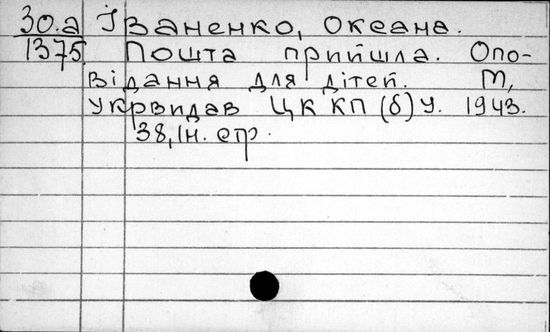 30.а Іваненко, Оксана.
1375 Пошта прийшла. Опо-
відання для дітей. М,
Укрвидав ЦК КП(б)У. 1943.
38, Ін. стр.